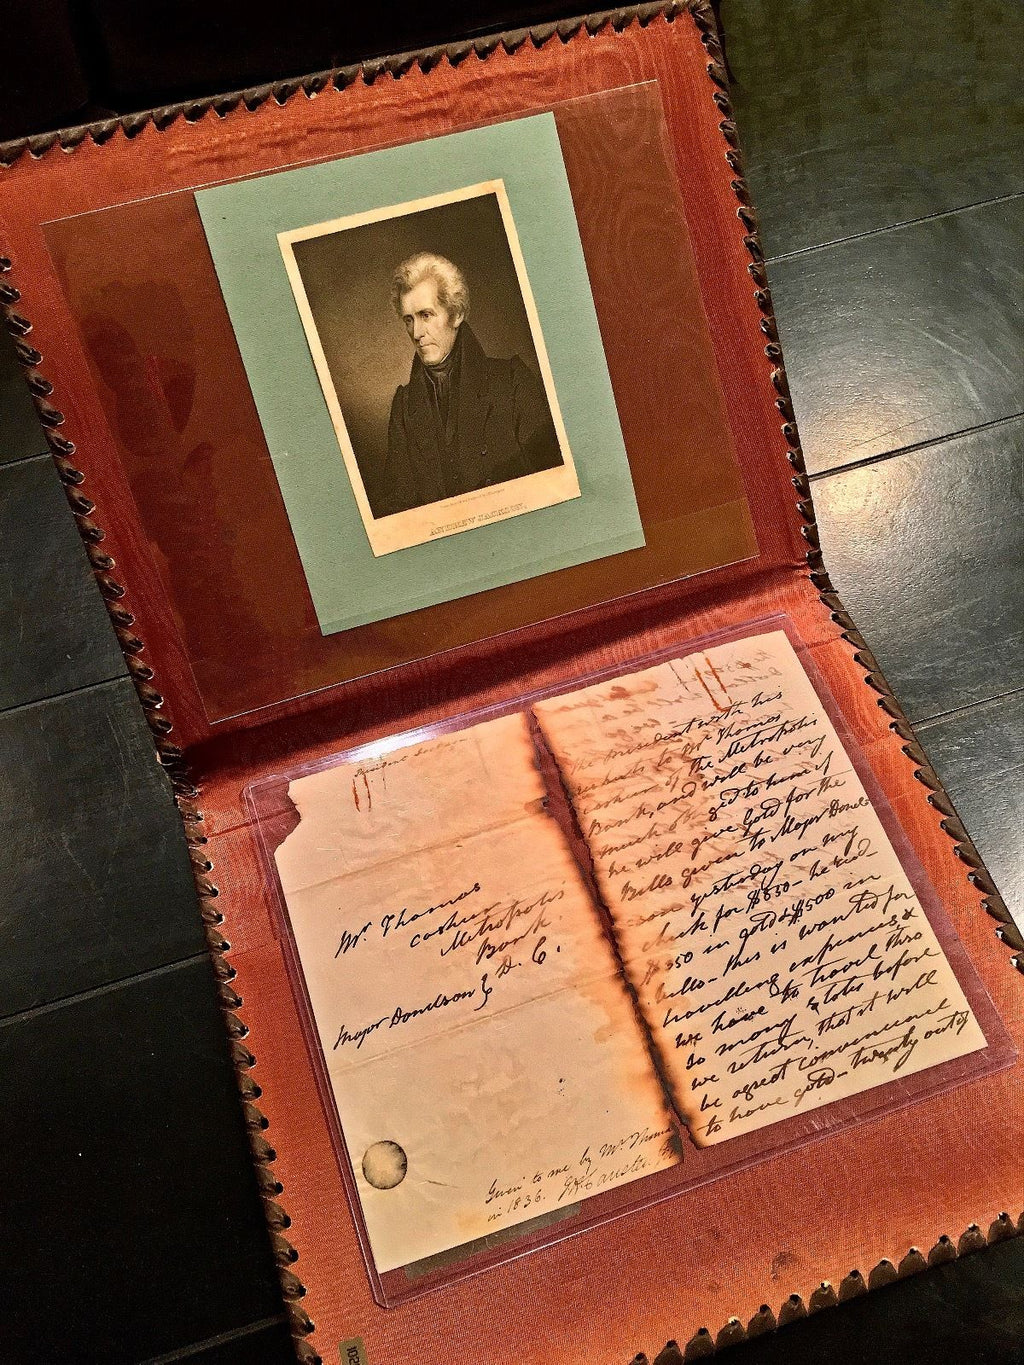 ANDREW JACKSON.
Mr. Thomas
cashier
Metropolis
Bank
D. C.
Major Donelson }
Given to me by Mr. Thomas
in 1836.
The president with his
to Mr. Thomas
cashier of the Metropolis
Bank, and will be very
much obliged to him if
he will give Gold for the
Bills given to Major Donel-
son yesterday on my
check for $850 - he
$350 in gold & $500 in
bills - this is wanted for
travelling expences, &
we have to travel thro
so many states before
we return, that it will
be a great convenience
to have gold - twenty out of
102